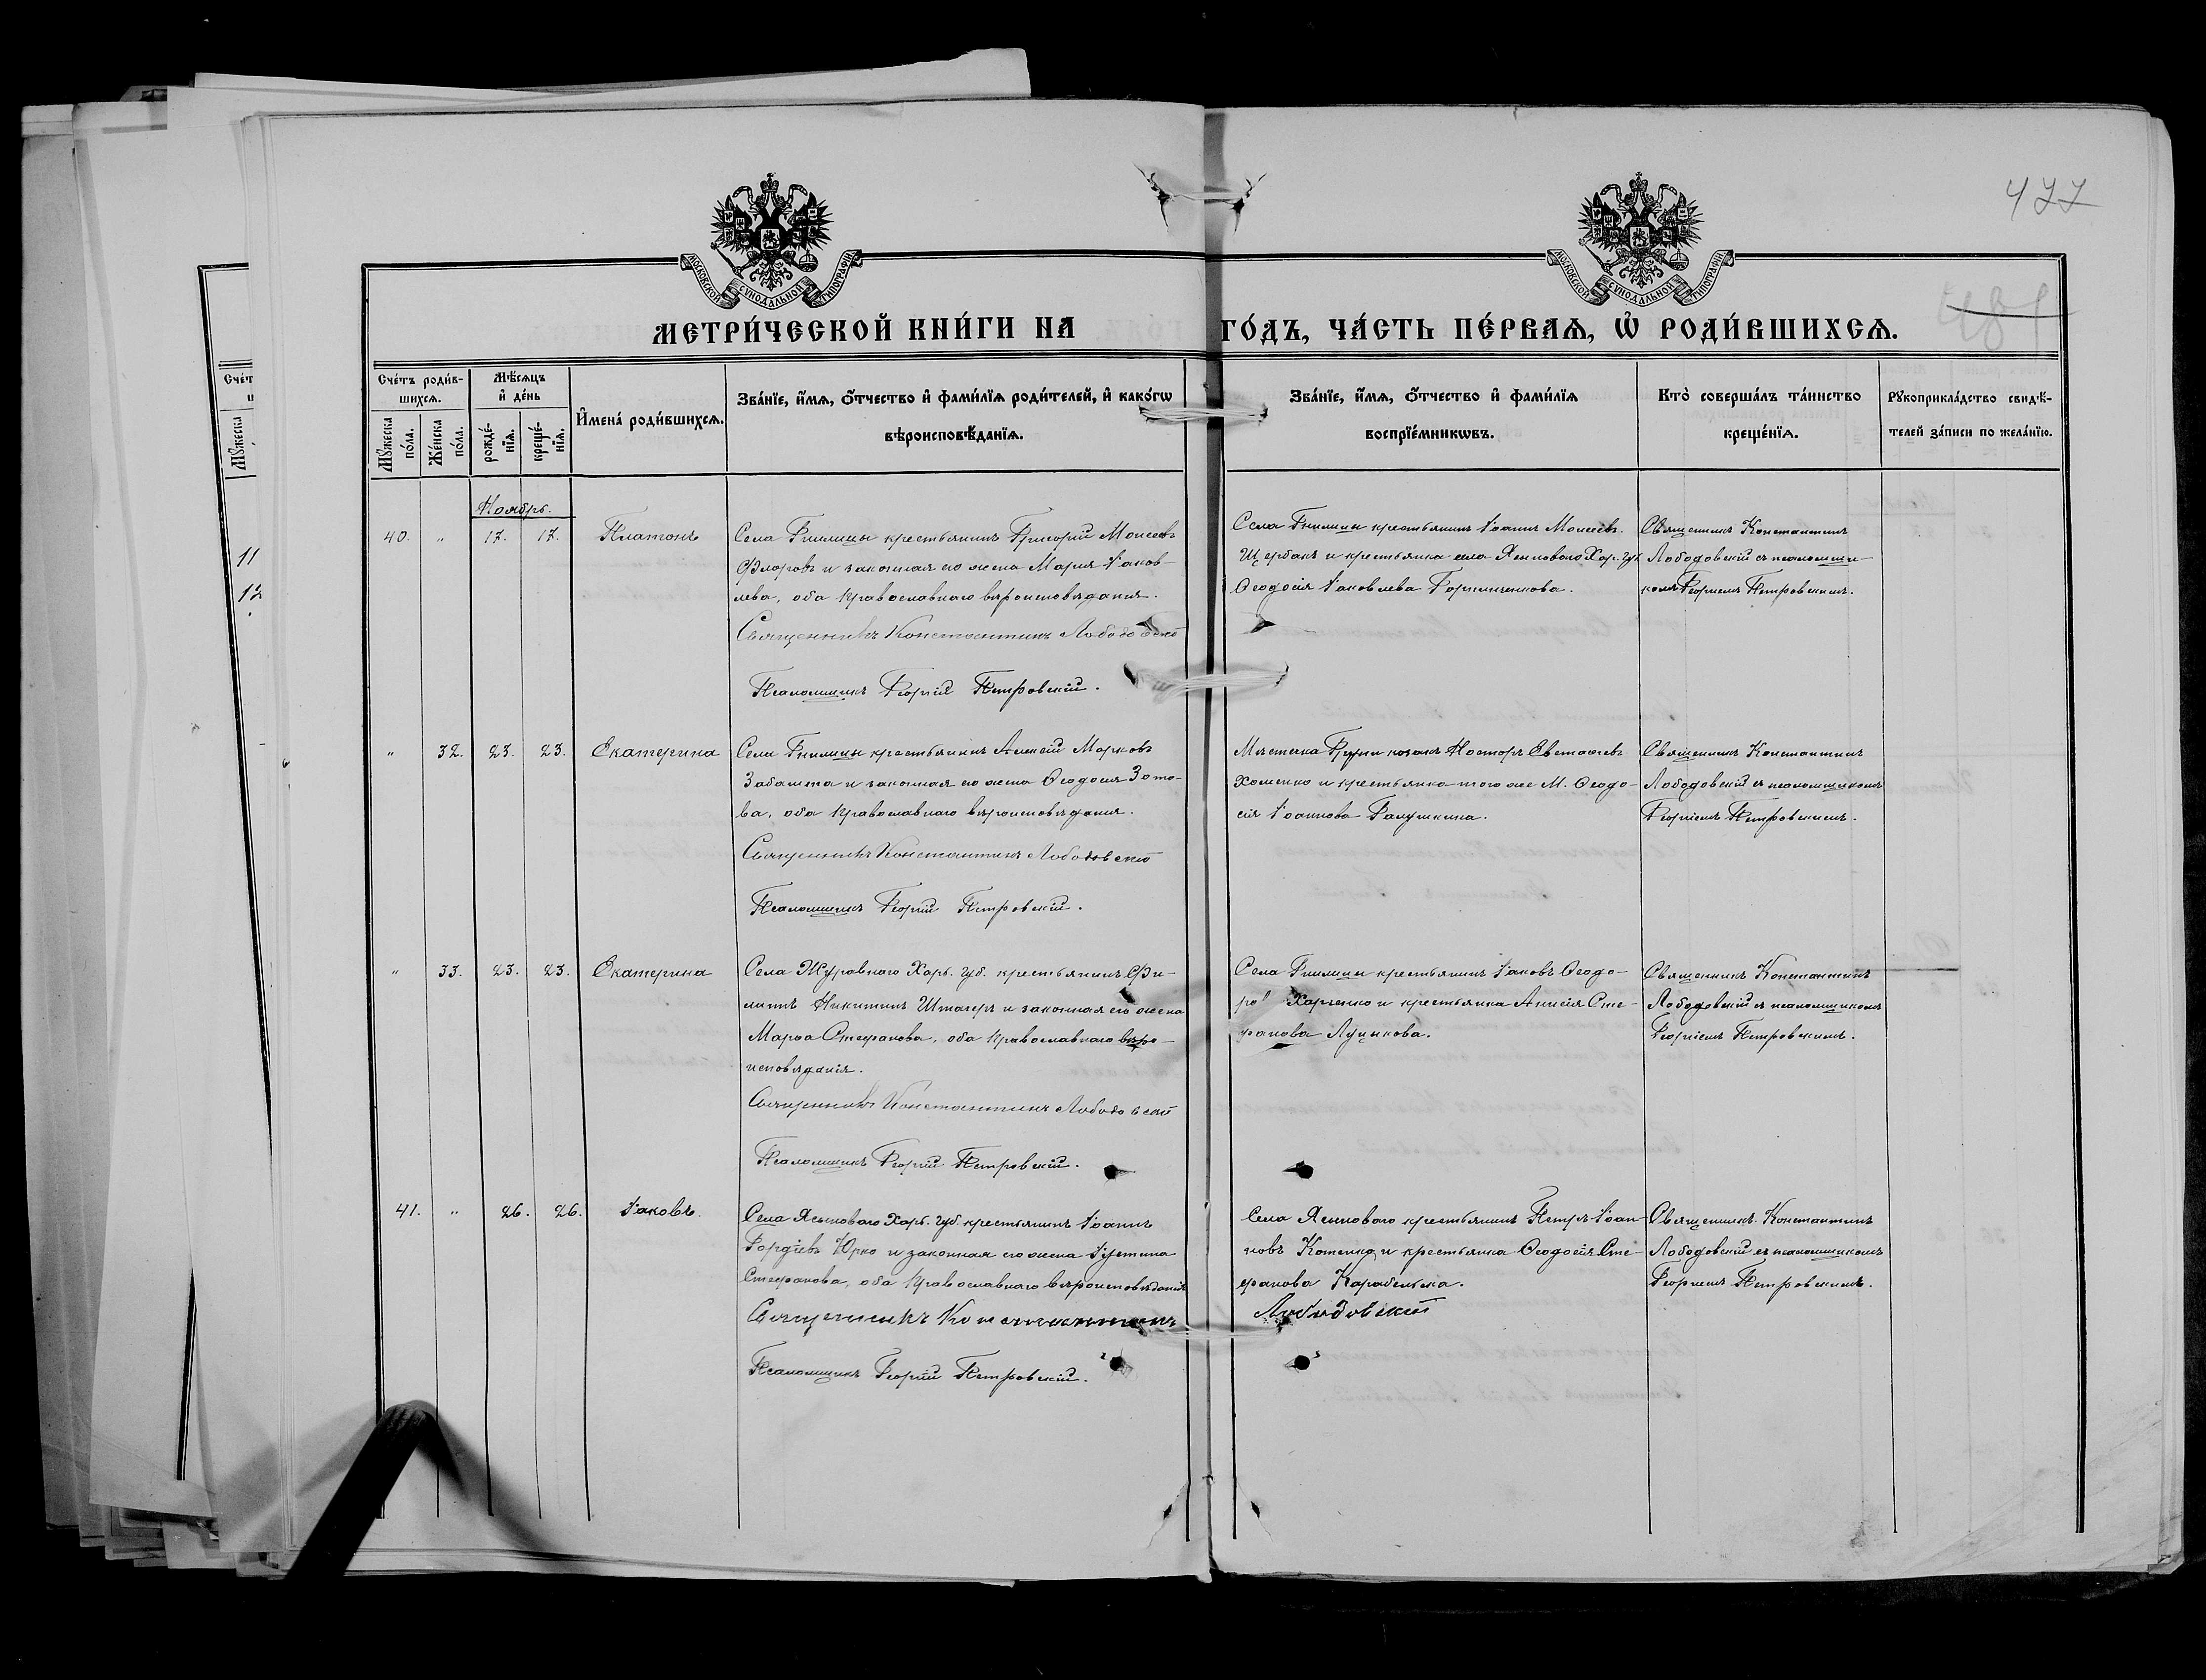 477
МОСКОВСКОЙ СѴНОДАЛЬНОЙ ТИПОГРАФІИ
МОСКОВСКОЙ СѴНОДАЛЬНОЙ ТИПОГРАФІИ
481
МЕТРИ́ЧЕСКОЙ КНИ́ГИ НА ГО́ДЪ, ЧА́СТЬ ПЕ́РВАѦ, Ѡ҆ РОДИ́ВШИХСѦ.
Сче́тъ роди́в-
шихсѧ.
Мꙋ́жеска по́ла.
Же́нска по́ла.
Мѣ́сѧцъ
и҆ де́нь
рожде́-
нїѧ.
креще́-
нїѧ.
И҆мена̀ роди́вшихсѧ.
Зва́нїе, и҆́мѧ, ѻ҆́тчество и҆ фами́лїѧ роди́телей, и҆ како́гѡ
вѣроисповѣ́данїѧ.
Зва́нїе, и҆́мѧ, ѻ҆́тчество и҆ фами́лїѧ
воспрїе́мникѡвъ.
Кто̀ соверша́лъ та́инство
креще́нїѧ.
Рꙋкоприкла́дство свидѣ́-
телей за́писи по жела́нїю.
Сче́т
Мꙋ́жеска
11
12
Ноябрь.
40. " 17. 17. Платонъ
Села Гнилицы крестьянинъ Григорій Моисеевъ
Флоровъ и законная его жена Марія Іаков-
лева, оба православнаго вѣроисповѣданія.
Священникъ Константинъ Лободовскій
Псаломщикъ Георгій Петровскій.
Села Гнилицы крестьянинъ Іоаннъ Моисеевъ
Щербакъ и крестьянка села Ясеноваго Хар. губ.
Ѳеодосія Іаковлева
Священникъ Константинъ
Лободовскій съ псаломщи-
комъ Георгіемъ Петровскимъ.
" 32. 23. 23. Екатерина
Села Гнилицы крестьянинъ Алексѣй Марковъ
Забашта и законная его жена Ѳеодосія Зото-
ва, оба православнаго вѣроисповѣданія.
Священникъ Константинъ Лободовскій
Псаломщикъ Георгій Петровскій.
Мѣстечка Груни козакъ Несторъ Евстафіевъ
Хоменко и крестьянка того же М. Ѳеодо-
сія Іоаннова Галушкина.
Священникъ Константинъ
Лободовскій съ псаломщикомъ
Георгіемъ Петровскимъ.
" 33. 23. 23. Екатерина
Села Журавнаго Харь. губ. крестьянинъ Фи-
липпъ Никитинъ и законная его жена
Марѳа Стефанова, оба православнаго вѣро-
исповѣданія.
Священникъ Константинъ Лободовскій
Псаломщикъ Георгій Петровскій.
Села Гнилицы крестьянинъ Іаковъ Ѳеодо-
ровъ Харченко и крестьянка Анисія Сте-
фанова Луцыкова.
Священникъ Константинъ
Лободовскій съ псаломщикомъ
Георгіемъ Петровскимъ.
41. " 26. 26. Іаковъ.
Села Ясеноваго Харь. губ. крестьянинъ Іоаннъ
Гордіевъ Юрко и законная его жена Іустина
Стефанова, оба православнаго вѣроисповѣданія
Священникъ Константинъ Лободовскій
Псаломщикъ Георгій Петровскій.
Села Ясеноваго крестьянинъ Петръ Іоан-
новъ Котенко и крестьянка Ѳеодосія Сте-
фанова Карабельска.
Священникъ Константинъ
Лободовскій съ псаломщикомъ
Георгіемъ Петровскимъ.